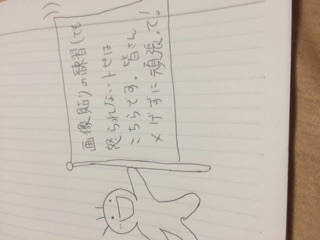 画像貼りの練習しても
怒られないトセは
こちらです。皆さん
メげずに頑張って!